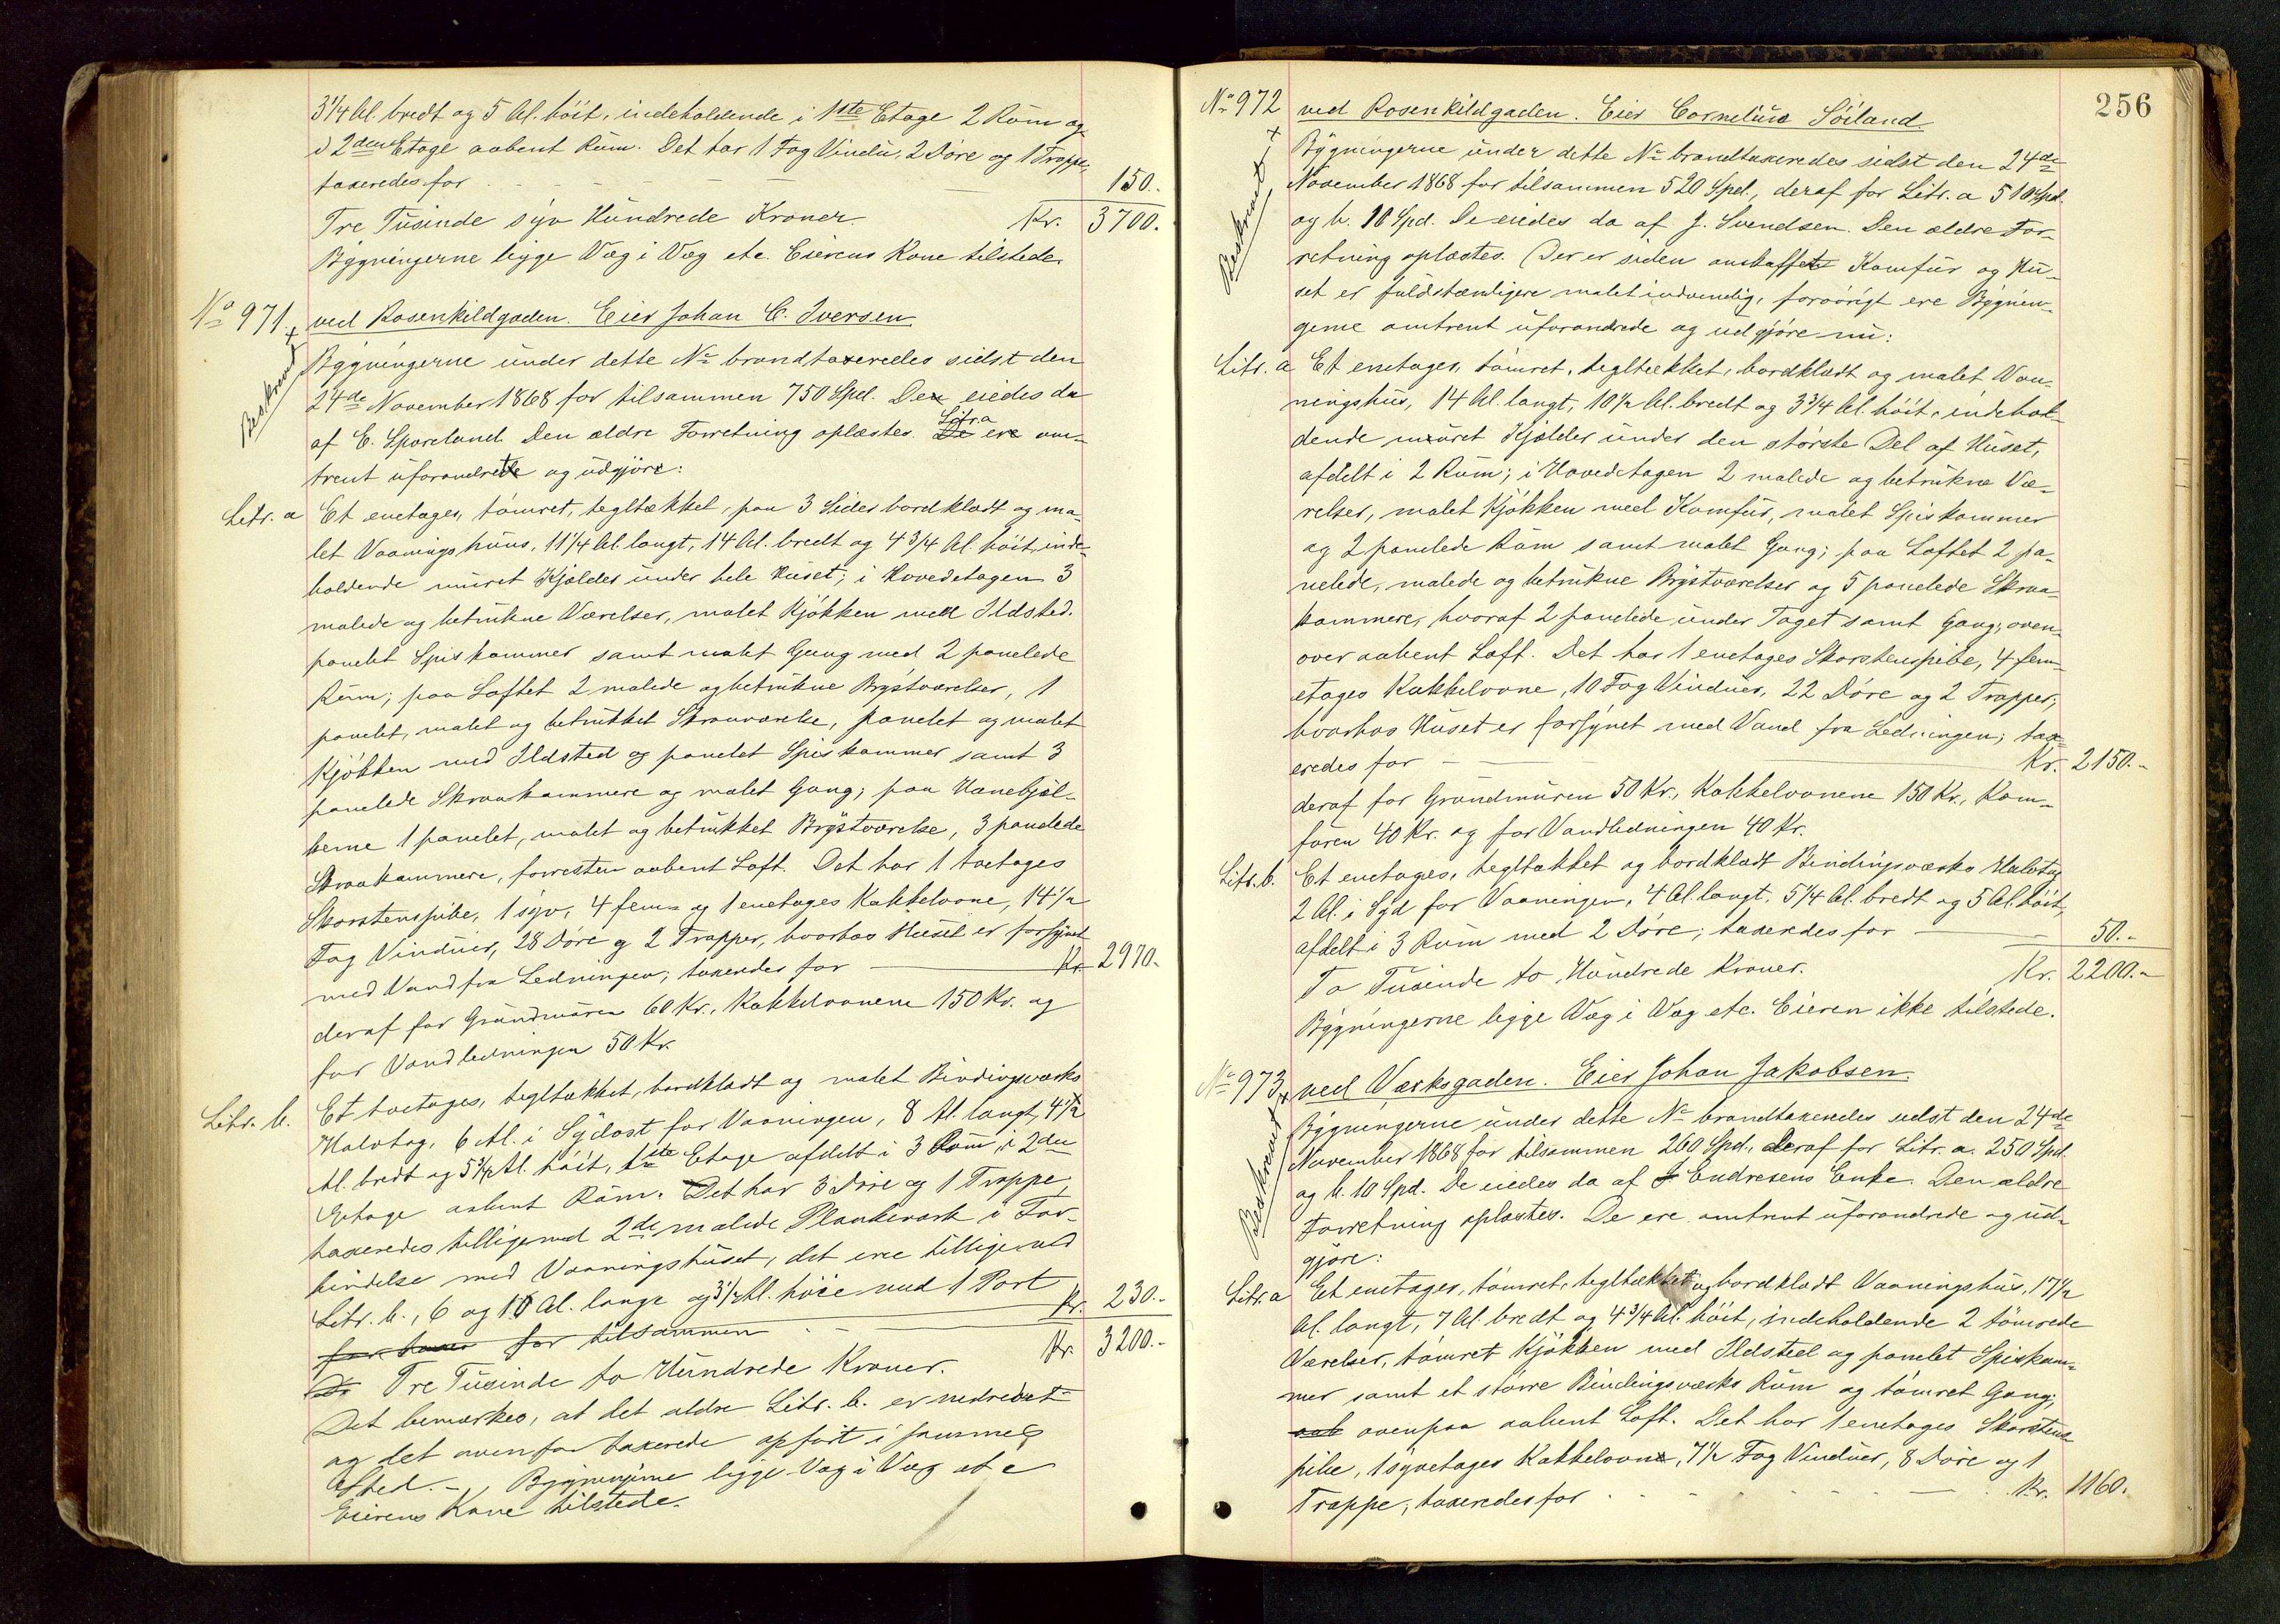 3 1/4 Al. bredt og 5 Al. höit, indeholdende i 1ste Etage 2 Rum og
i 2den Etage aabent Rum. Det har 1 Fag Vindu, 2 Döre og 1 Trappe,
taxeredes for 150.
Tre Tusinde syv Hundrede Kroner Kr. 3700.
Bygningerne ligge Væg i Væg etc. Eierens Kone tilstede.
No 971 ved Rosenkildgaden. Eier Johan C. Iversen
Beskrevet
Bygningerne under dette No brandtaxeredes sidst den
24de November 1868 for tilsammen 750 Spd. De eiedes da
af E. Sporeland. Den ældre Forretning oplæstes. De Litr. a er om-
trent uforandret og udgjör:
Litr. a Et enetages, tömret, tegltækket, paa 3 Sider bordklædt og ma-
let Vaaningshuus, 11 1/4 Al. langt, 14 Al. bredt og 4 3/4 Al. höit, inde-
holdende muret Kjælder under hele Huset; i Hovedetagen 3
malede og betrukne Værelser, malet Kjökken med Ildsted.
panelet Spiskammer samt malet Gang med 2 panelede
Rum; paa Loftet 2 malede og betrukne Brystværelser, 1
panelet, malet og betrukket Skraaværelse, panelet og malet
Kjökken med Ildsted og panelet Spiskammer samt 3
panelede Skraakammere og malet Gang; paa Hanebjæl-
kerne 1 panelet, malet og betrukket Brystværelse, 3 panelede
Skraakammere, forresten aabent Loft. Det har 1 toetages
Skorstenspibe, 1 syv, 4 fem- og 1 enetages Kakkelovne, 14 1/2
Fag Vinduer, 28 Döre og 2 Trapper, hvorhos Huset er forsynet
med Vand fra Ledningen; taxeredes for Kr. 2970.
deraf for Grundmuren 60 Kr., Kakkelovnene 150 Kr. og
for Vandledningen 50 Kr.
Litr. b. Et toetages, tegltækket, bordklædt og malet Bindingsværks
Halvtag, 6 Al. i Sydost for Vaaningen, 8 Al. langt, 4 1/2
Al. bredt og 5 3/4 Al. höit, 1ste Etage afdelt i 3 Rum, i 2den
Etage aabent Rum. Det har 3 Döre og 1 Trappe,
taxeredes tilligemed 2de malede Plankeværk i For-
bindelse med Vaaningshuset, det ene tilligemed
Litr. b., 6 og 10 Al. lange og 3 1/2 Al. höie med 1 Port
for tilsammen Kr. 230.-
Tre Tusinde to Hundrede Kroner. Kr. 3200.-
Det bemærkes, at det ældre Litr. b. er nedrevet
og det ovenfor taxerede opfört i samme
Sted. - Bygningerne ligge Væg i Væg etc
Eierens Kone tilstede.
256
No 972 ved Rosenkildgaden. Eier Cornelius Söiland.
Beskrevet
Bygningerne under dette No brandtaxeredes sidst den 24de
November 1868 for tilsammen 520 Spd., deraf for Litr. a 510 Spd.
og b. 10 Spd. De eiedes da af J. Svendsen. Den ældre For-
retning oplæstes. Der er siden anskaffet Komfur og Hu-
set er fuldstændigere malet indvendig, forövrigt ere Bygnin-
gerne omtrent uforandrede og udgjöre nu:
Litr. a Et enetages, tömret, tegltækket, bordklædt og malet Vaa-
ningshus, 14 Al. langt, 10 1/2 Al. bredt og 3 3/4 Al. höit, indehol-
dende muret Kjælder under den störste Del af Huset,
afdelt i 2 Rum; i Hovedetagen 2 malede og betrukne Væ-
relser, malet Kjökken med Komfur, malet Spiskammer
og 2 panelede Rum samt malet Gang; paa Loftet 2 pa-
nelede, malede og betrukne Brystværelser og 5 panelede Skraa-
kammere, hvoraf 2 panelede under Taget samt Gang, oven-
over aabent Loft. Det har 1 enetages Skorstenspibe, 4 fem-
etages Kakkelovne, 10 Fag Vinduer, 22 Döre og 2 Trapper,
hvorhos Huset er forsynet med Vand fra Ledningen; tax-
eredes for Kr. 2150.-
deraf for Grundmuren 50 Kr., Kakkelovnene 150 Kr., Kom-
furen 40 Kr. og for Vandledningen 40 Kr.
Litr. b. Et enetages, tegltækket og bordklædt Bindingsværks Halvtag
2 Al. i Syd for Vaaningen, 4 Al. langt, 5 1/4 Al. bredt og 5 Al. höit,
afdelt i 3 Rum med 2 Döre; taxeredes for 50.-
To Tusinde to Hundrede Kroner. Kr. 2200.-
Bygningerne ligge Væg i Væg etc. Eieren ikke tilstede.
No 973 ved Værksgaden. Eier Johan Jakobsen.
Beskrevet
Bygningerne under dette No brandtaxeredes sidst den 24de
November 1868 for tilsammen 260 Spd., deraf for Litr. a. 250 Spd.
og b. 10 Spd. De eiedes da af Endresens Enke. Den ældre
Forretning oplæstes. De ere omtrent uforandrede og ud-
gjöre:
Litr. a Et enetages, tömret, tegltækket og bordklædt Vaaningshus, 17 1/2
Al. langt, 7 Al. bredt og 4 3/4 Al. höit, indeholdende 2 tömrede
Værelser, tömret Kjökken med Ildsted og panelet Spiskam-
mer samt et större Bindingsværks Rum og tömret Gang;
ovenpaa aabent Loft. Det har 1 enetages Skorstens-
pibe, 1 syvetages Kakkelovn, 7 1/2 Fag Vinduer, 8 Döre og 1
Trappe; taxeredes for Kr. 1160.